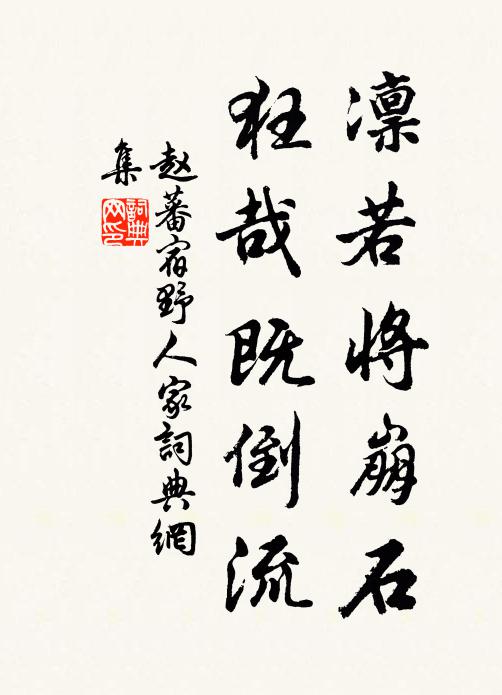 凛若将崩石
狂哉既倒流
赵蕃宿野人家詞典網
集
詞典
网印